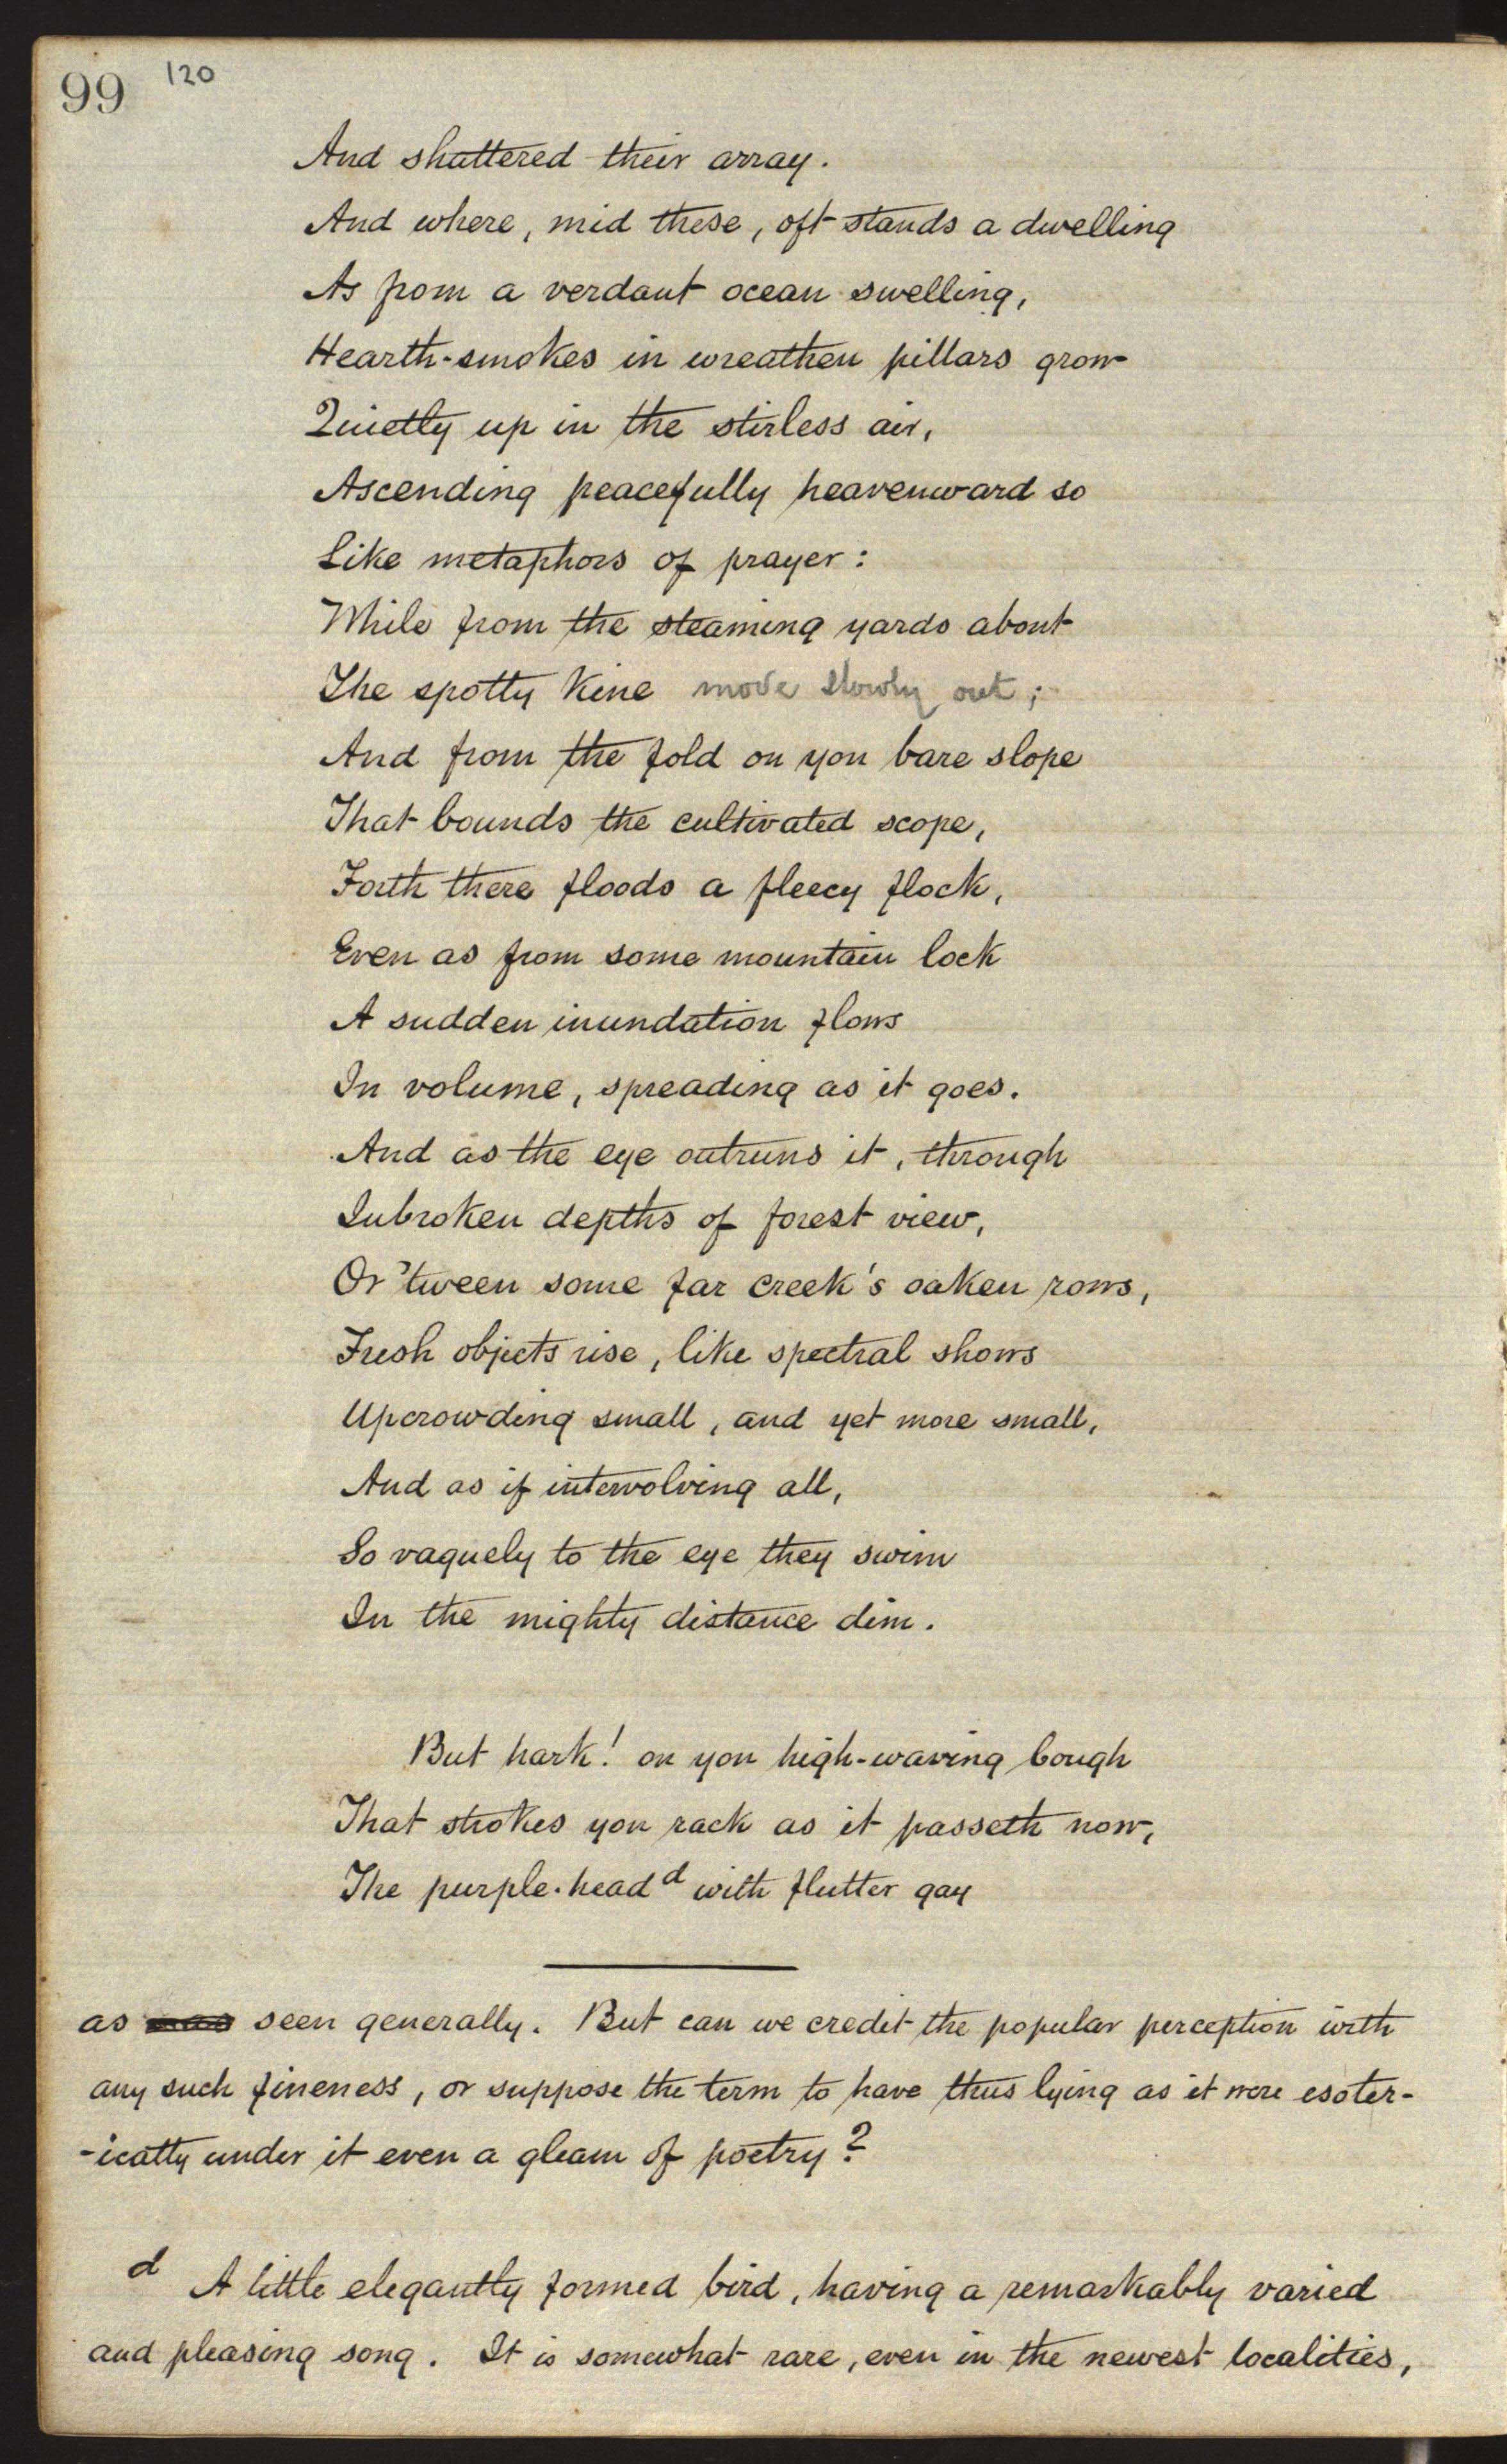 99 120
And shattered their array.
And where, mid these, oft stands a dwelling
As from a verdant ocean swelling,
Hearth-smokes in wreathen pillars grow
Quietly up in the stirless air,
Ascending peacefully heavenward so
Like metaphors of prayer:
While from the steaming yards about
The spotty kine move slowly out;
And from the fold on yon bare slope
That bounds the cultivated scope,
Forth there floods a fleecy flock,
Even as from some mountain lock
A sudden inundation flows
In volume, spreading as it goes.
And as the eye outruns it, through
Inbroken depths of forest view,
Or 'tween some far creek's oaken rows,
Fresh objects rise, like spectral shows
Upcrowding small, and yet more small,
And as if intervolving all,
So vaguely to the eye they swim
In the mighty distance dim.
But hark! on yon high-waving bough
That strokes yon rack as it passeth now,
The purple-head d with flutter gay
as was seen generally. But can we credit the popular perception with
any such fineness, or suppose the term to have thus lying as it were esoter-
-ically under it even a gleam of poetry?
d A little elegantly formed bird, having a remarkably varied
and pleasing song. It is somewhat rare, even in the newest localities,